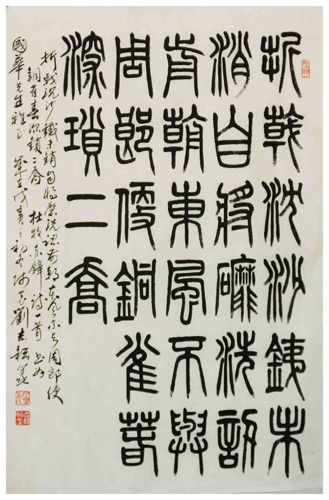 折戟沈沙銕未
消自將磨洗認
前朝東風不與
周郎便銅雀春
深瑣二喬
折戟沈沙鐵未銷自將磨洗認前朝東風不與周郎便
銅雀春深鎖二喬 杜牧赤壁詩一首 書為
國華先生雅正 戊寅之初 劉